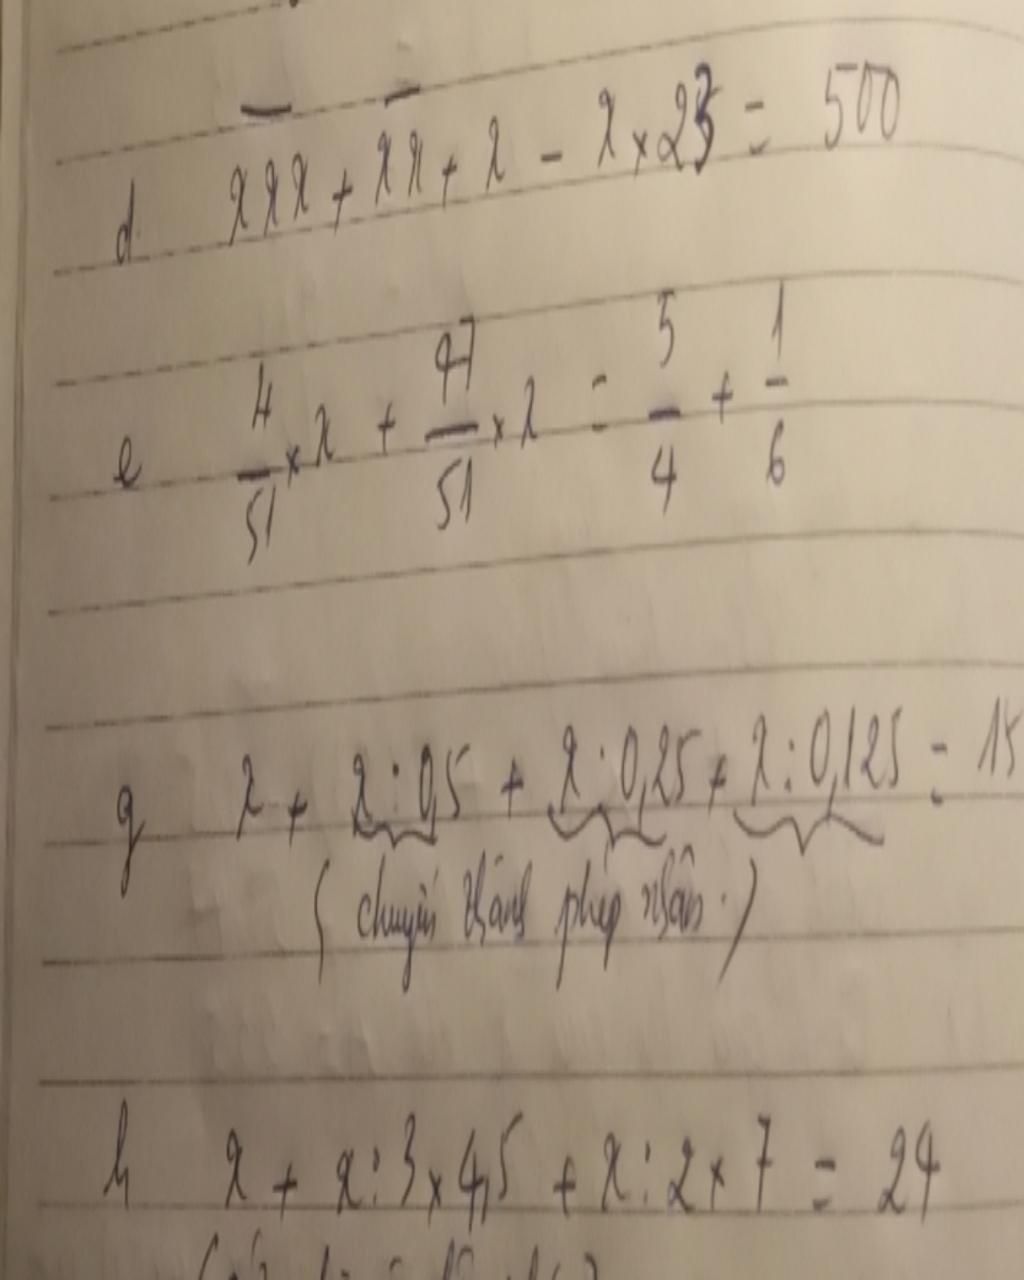 d. xxx + xx + x - x × 23 = 500
e 4/51 × x + 47/51 × x = 5/4 + 1/6
g x + x : 0,5 + x : 0,25 + x : 0,125 = 15
( chuyển thành phép nhân . )
h x + x : 3 × 4,5 + x : 2 × 7 = 24